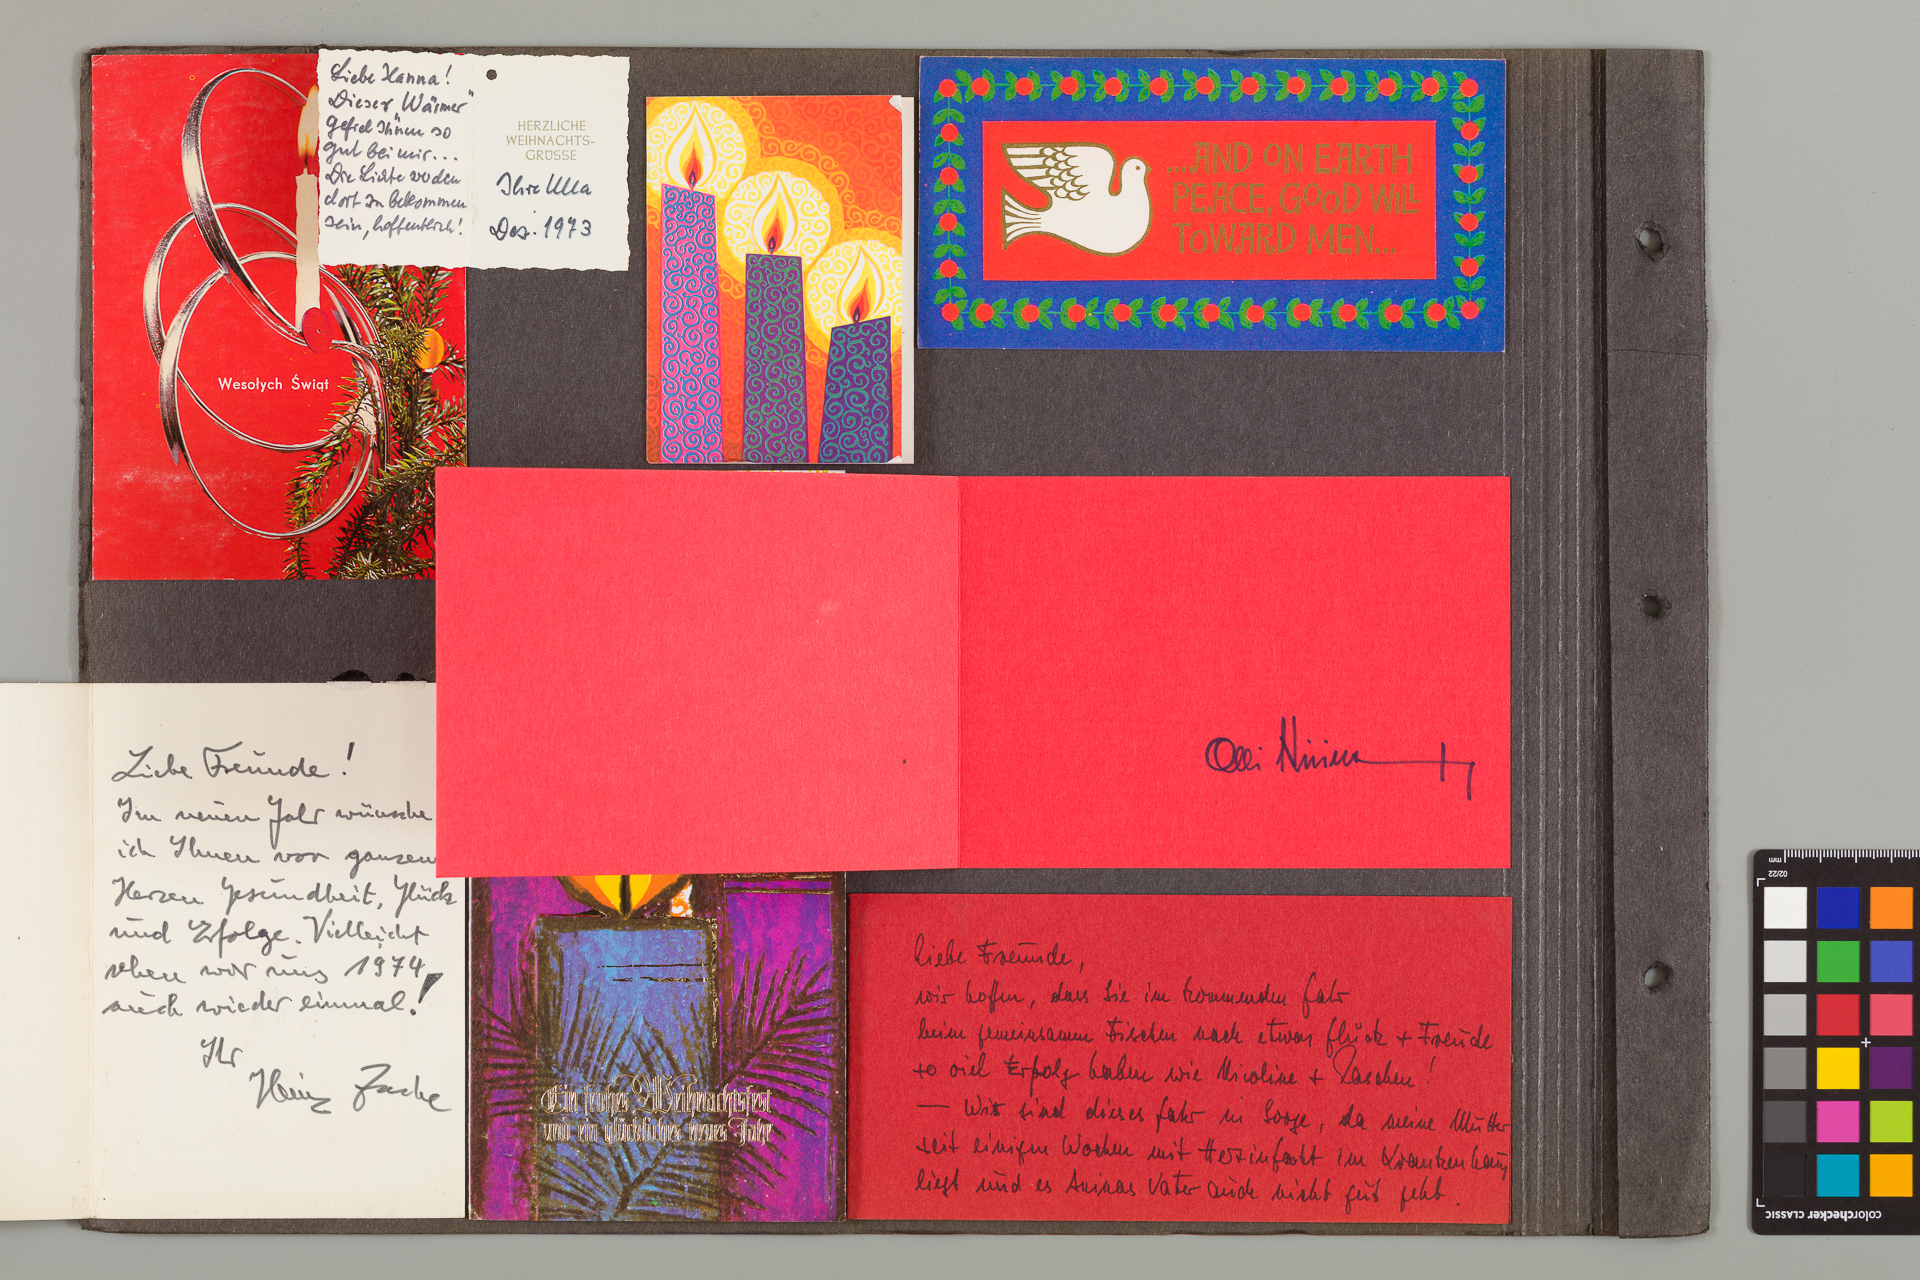 Liebe Hanna!
Dieser "Wärmer"
gefiel Ihnen so
gut bei mir...
Die Lichte werden
dort zu bekommen
sein, hoffentlich!
HERZLICHE
WEIHNACHTS-
GRÜSSE
Ihre Ulla
Dez. 1973
Wesołych Świąt
...AND ON EARTH
PEACE, GOOD WILL
TOWARD MEN...
Olli
Liebe Freunde!
Im neuen Jahr wünsche
ich Ihnen von ganzem
Herzen Gesundheit, Glück
und Erfolge. Vielleicht
sehen wir uns 1974
auch wieder einmal!
Ihr
Heinz
Ein frohes Weihnachtsfest
und ein glückliches neues Jahr
Liebe Freunde,
wir hoffen, dass Sie im kommenden Jahr
beim gemeinsamen Fischen auch etwas Glück + Freude
so viel Erfolg haben wie Nicoline +
— Wir sind dieses Jahr in Sorge, da meine Mutter
seit einigen Wochen mit Herzinfarkt im Krankenhaus
liegt und es Vater auch nicht gut geht.
mm
02/22
colorchecker CLASSIC